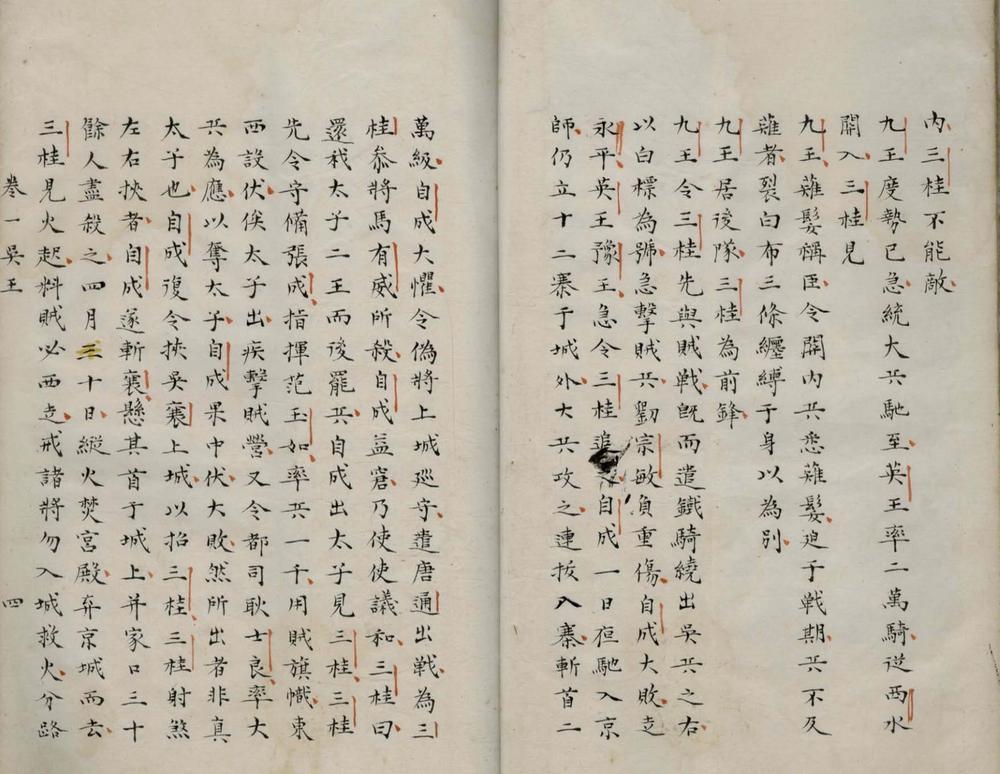 内三桂不能敵
九王度勢已急統大兵馳至英王率二萬騎從西水
關入三桂見
九王薙髮稱臣令關内兵悉薙髮迫于戰期兵不及
薙者裂白布三條纏縛于身以為別
九王居後隊三桂為前鋒
九王令三桂先與賊戰既而遣鐵騎繞出吳兵之右
以白標為號急擊賊兵劉宗敏負重傷自成大敗走
永平英王豫王急令三桂追自成一日夜馳入京
師仍立十二寨于城外大兵攻之連拔八寨斬首二
萬級自成大懼令偽將上城廵守遣唐通出戰為三
桂叅將馬有威所殺自成益窘乃使使議和三桂曰
還我太子二王而後罷兵自成出太子見三桂三桂
先令守備張成指揮范玉如率兵一千用賊旗幟東
西設伏俟太子出疾擊賊營又令都司耿士良率大
兵為應以奪太子自成果中伏大敗然所出者非真
太子也自成復令挾吳襄上城以招三桂三桂射煞
左右挾者自成遂斬襄懸其首于城上并家口三十
餘人盡殺之四月三十日縱火焚宮殿弃京城而去
三桂見火起料賊必西走戒諸將勿入城救火分路
卷一吳王　四